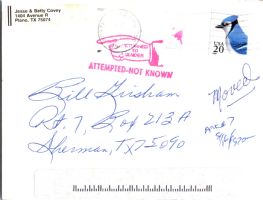 Jesse & Betty Covey
1404 Avenue P
Plano, TX 75074
USA
20
RETURNED
TO
SENDER
ATTEMPTED-NOT KNOWN
Moved
Bill Grisham
Rt. 7, Box 213 A
Sherman, TX 75090